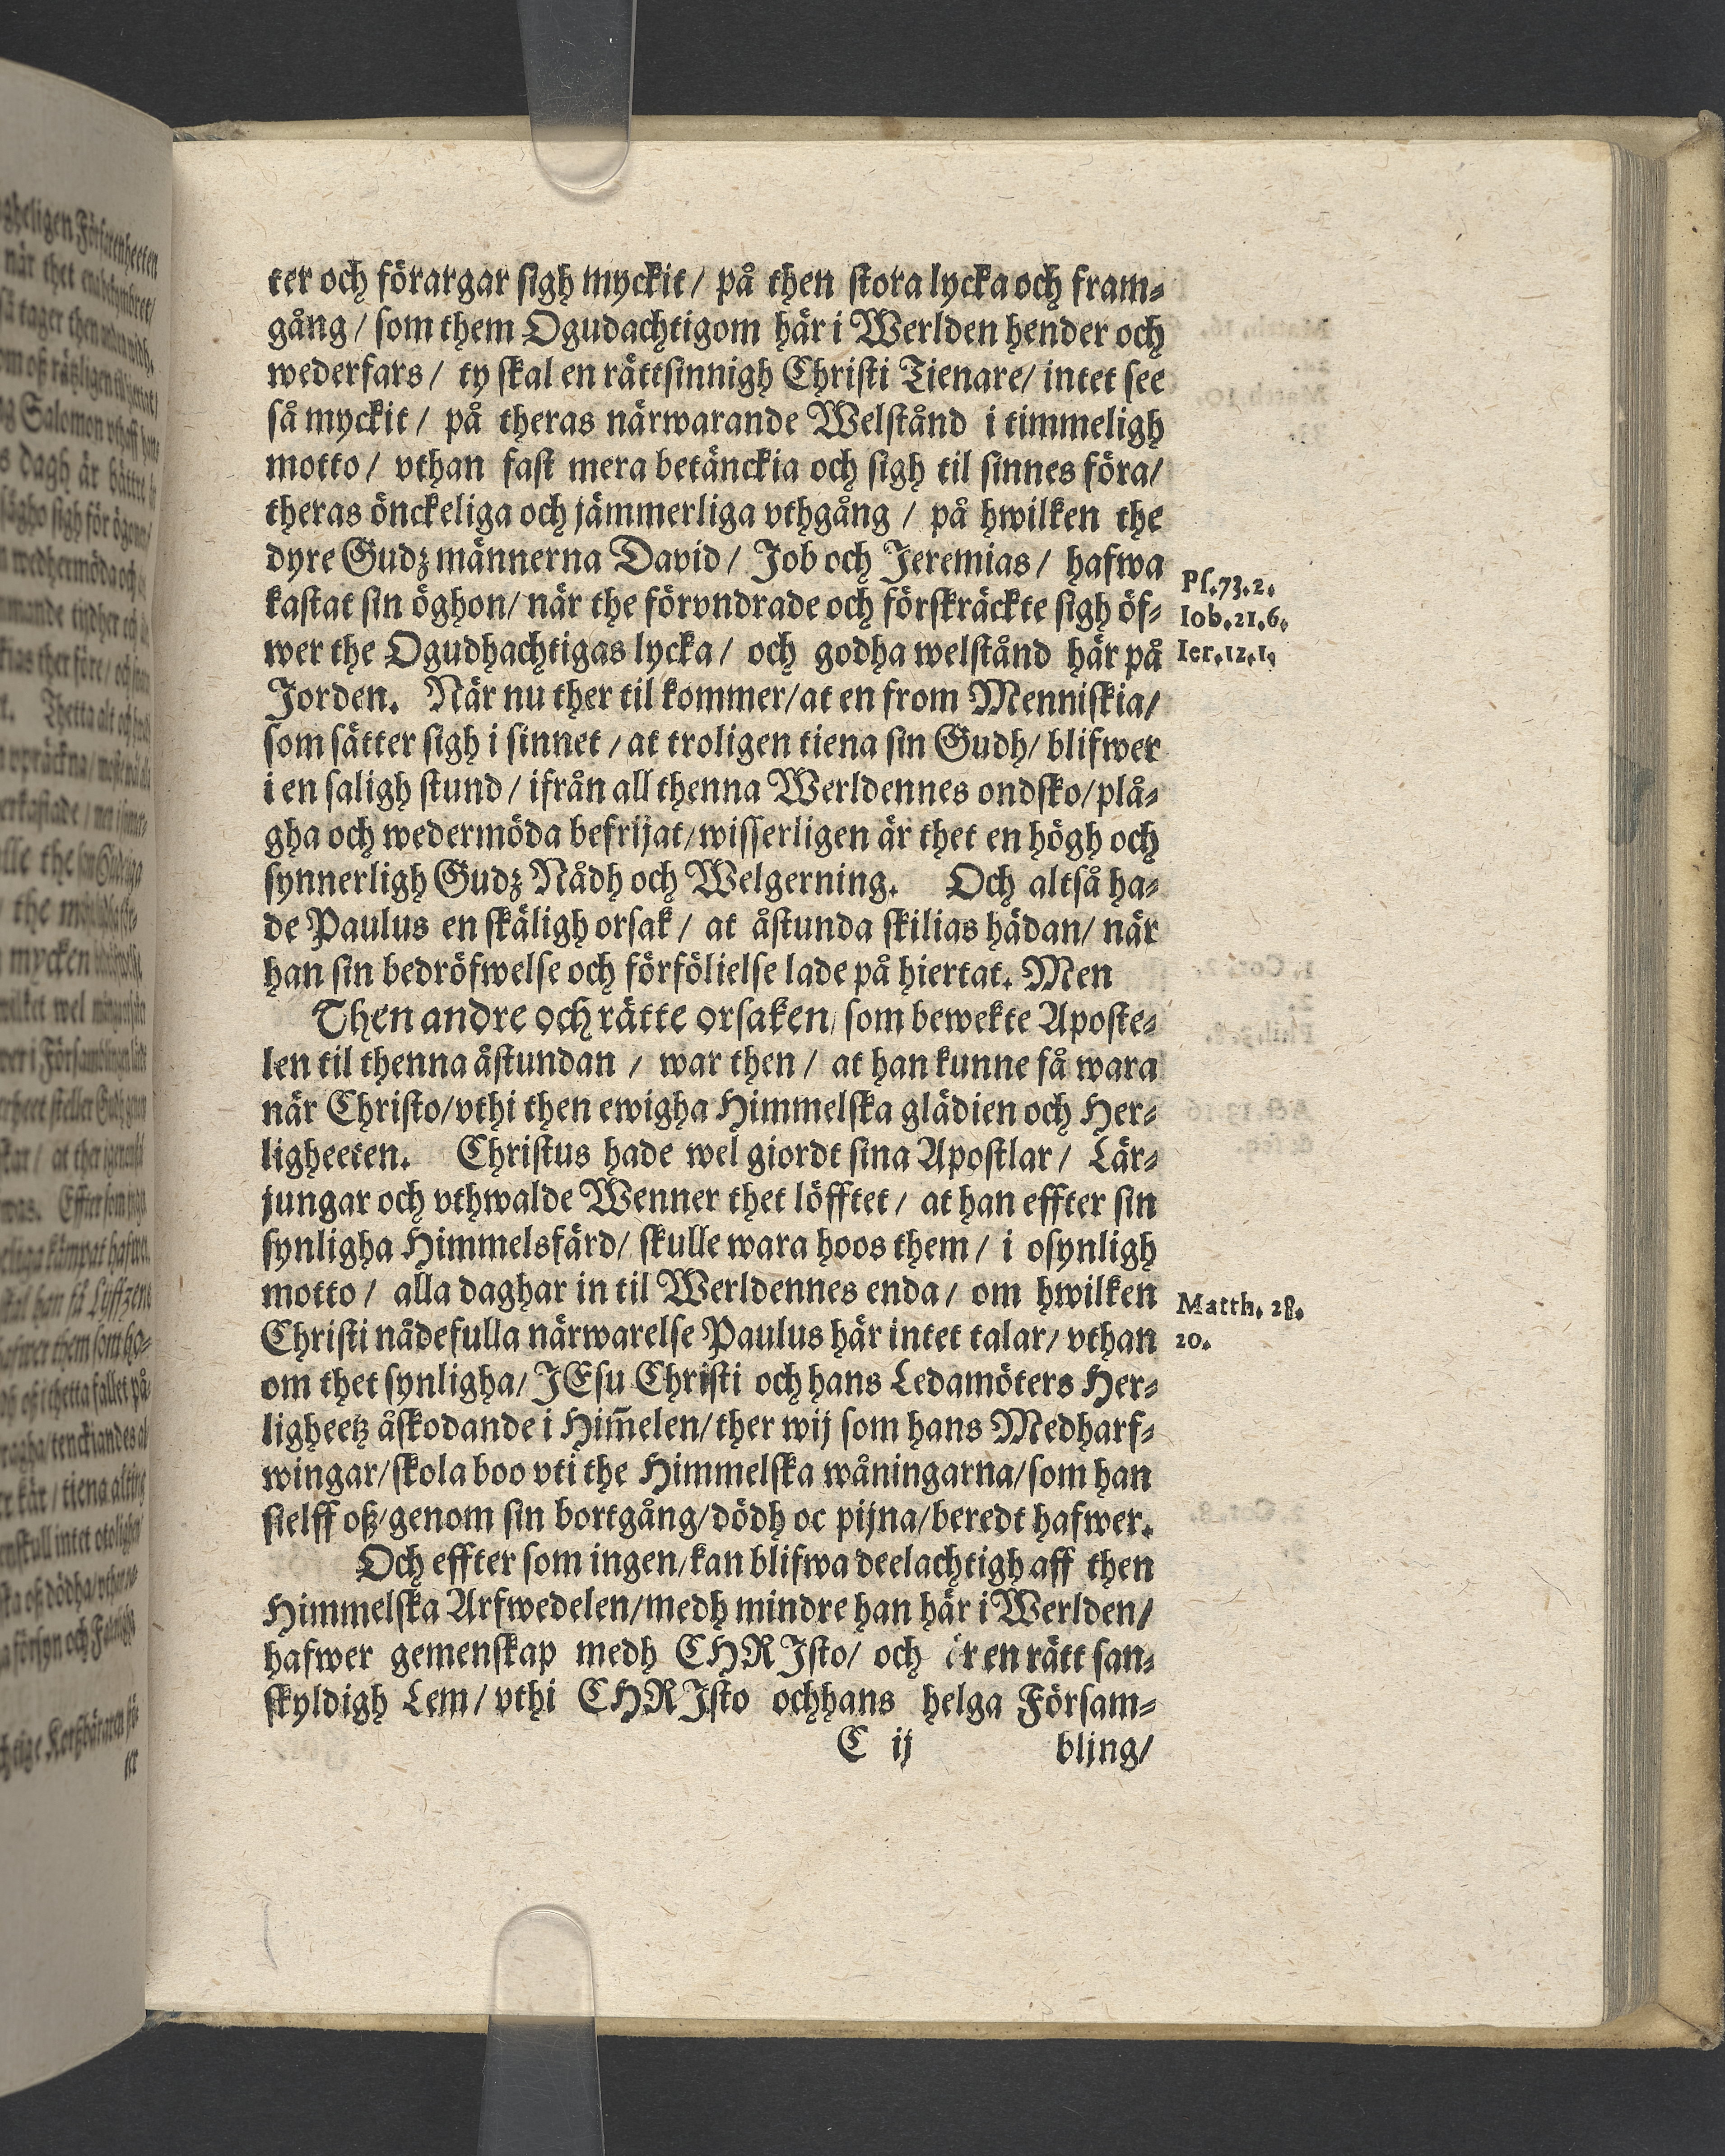 ter och förargar sigh myckit / på then stora lycka och fram-
gång / som them Ogudachtigom här i Werlden hender och
wederfars / ty skal en rättsinnigh Christi Tienare / intet see
så myckit / på theras närwarande Welstånd i timmeligh
motto / vthan fast mera betänckia och sigh til sinnes föra /
theras önckeliga och jämmerliga vthgång / på hwilken the
dyre Gudz männerna David / Job och Jeremias / hafwa
Ps.73.2.
kastat sin öghon / när the förvndrade och förskräckte sigh öf-
Iob.21.6.
wer the Ogudhachtigas lycka / och godha welstånd här på
Ier.12.1.
Jorden. När nu ther til kommer / at en from Menniskia /
som sätter sigh i sinnet / at troligen tiena sin Gudh / blifwer
i en saligh stund / ifrån all thenna Werldennes ondsko / plå-
gha och wedermöda befrijat / wisserligen är thet en högh och
synnerligh Gudz Nådh och Welgerning. Och altså ha-
de Paulus en skäligh orsak / at åstunda skilias hädan / när
han sin bedröfwelse och förfölielse lade på hiertat. Men
Then andre och rätte orsaken / som bewekte Aposte-
len til thenna åstundan / war then / at han kunne få wara
när Christo / vthi then ewigha Himmelska glädien och Her-
ligheeten. Christus hade wel giordt sina Apostlar / Lär-
jungar och vthwalde Wenner thet löfftet / at han effter sin
synligha Himmelsfärd / skulle wara hoos them / i osynligh
motto / alla daghar in til Werldennes enda / om hwilken
Matth. 28.
Christi nådefulla närwarelse Paulus här intet talar / vthan
20.
om thet synligha / JEsu Christi och hans Ledamöters Her-
ligheetz åskodande i Him̃elen / ther wij som hans Medharf-
wingar / skola boo vti the Himmelska wåningarna / som han
sielff oß / genom sin bortgång / dödh oc pijna / beredt hafwer.
Och effter som ingen / kan blifwa deelachtigh aff then
Himmelska Arfwedelen / medh mindre han här i Werlden /
hafwer gemenskap medh CHRJsto / och är en rätt san-
skyldigh Lem / vthi CHRJsto ochhans helga Försam-
C ij bling /